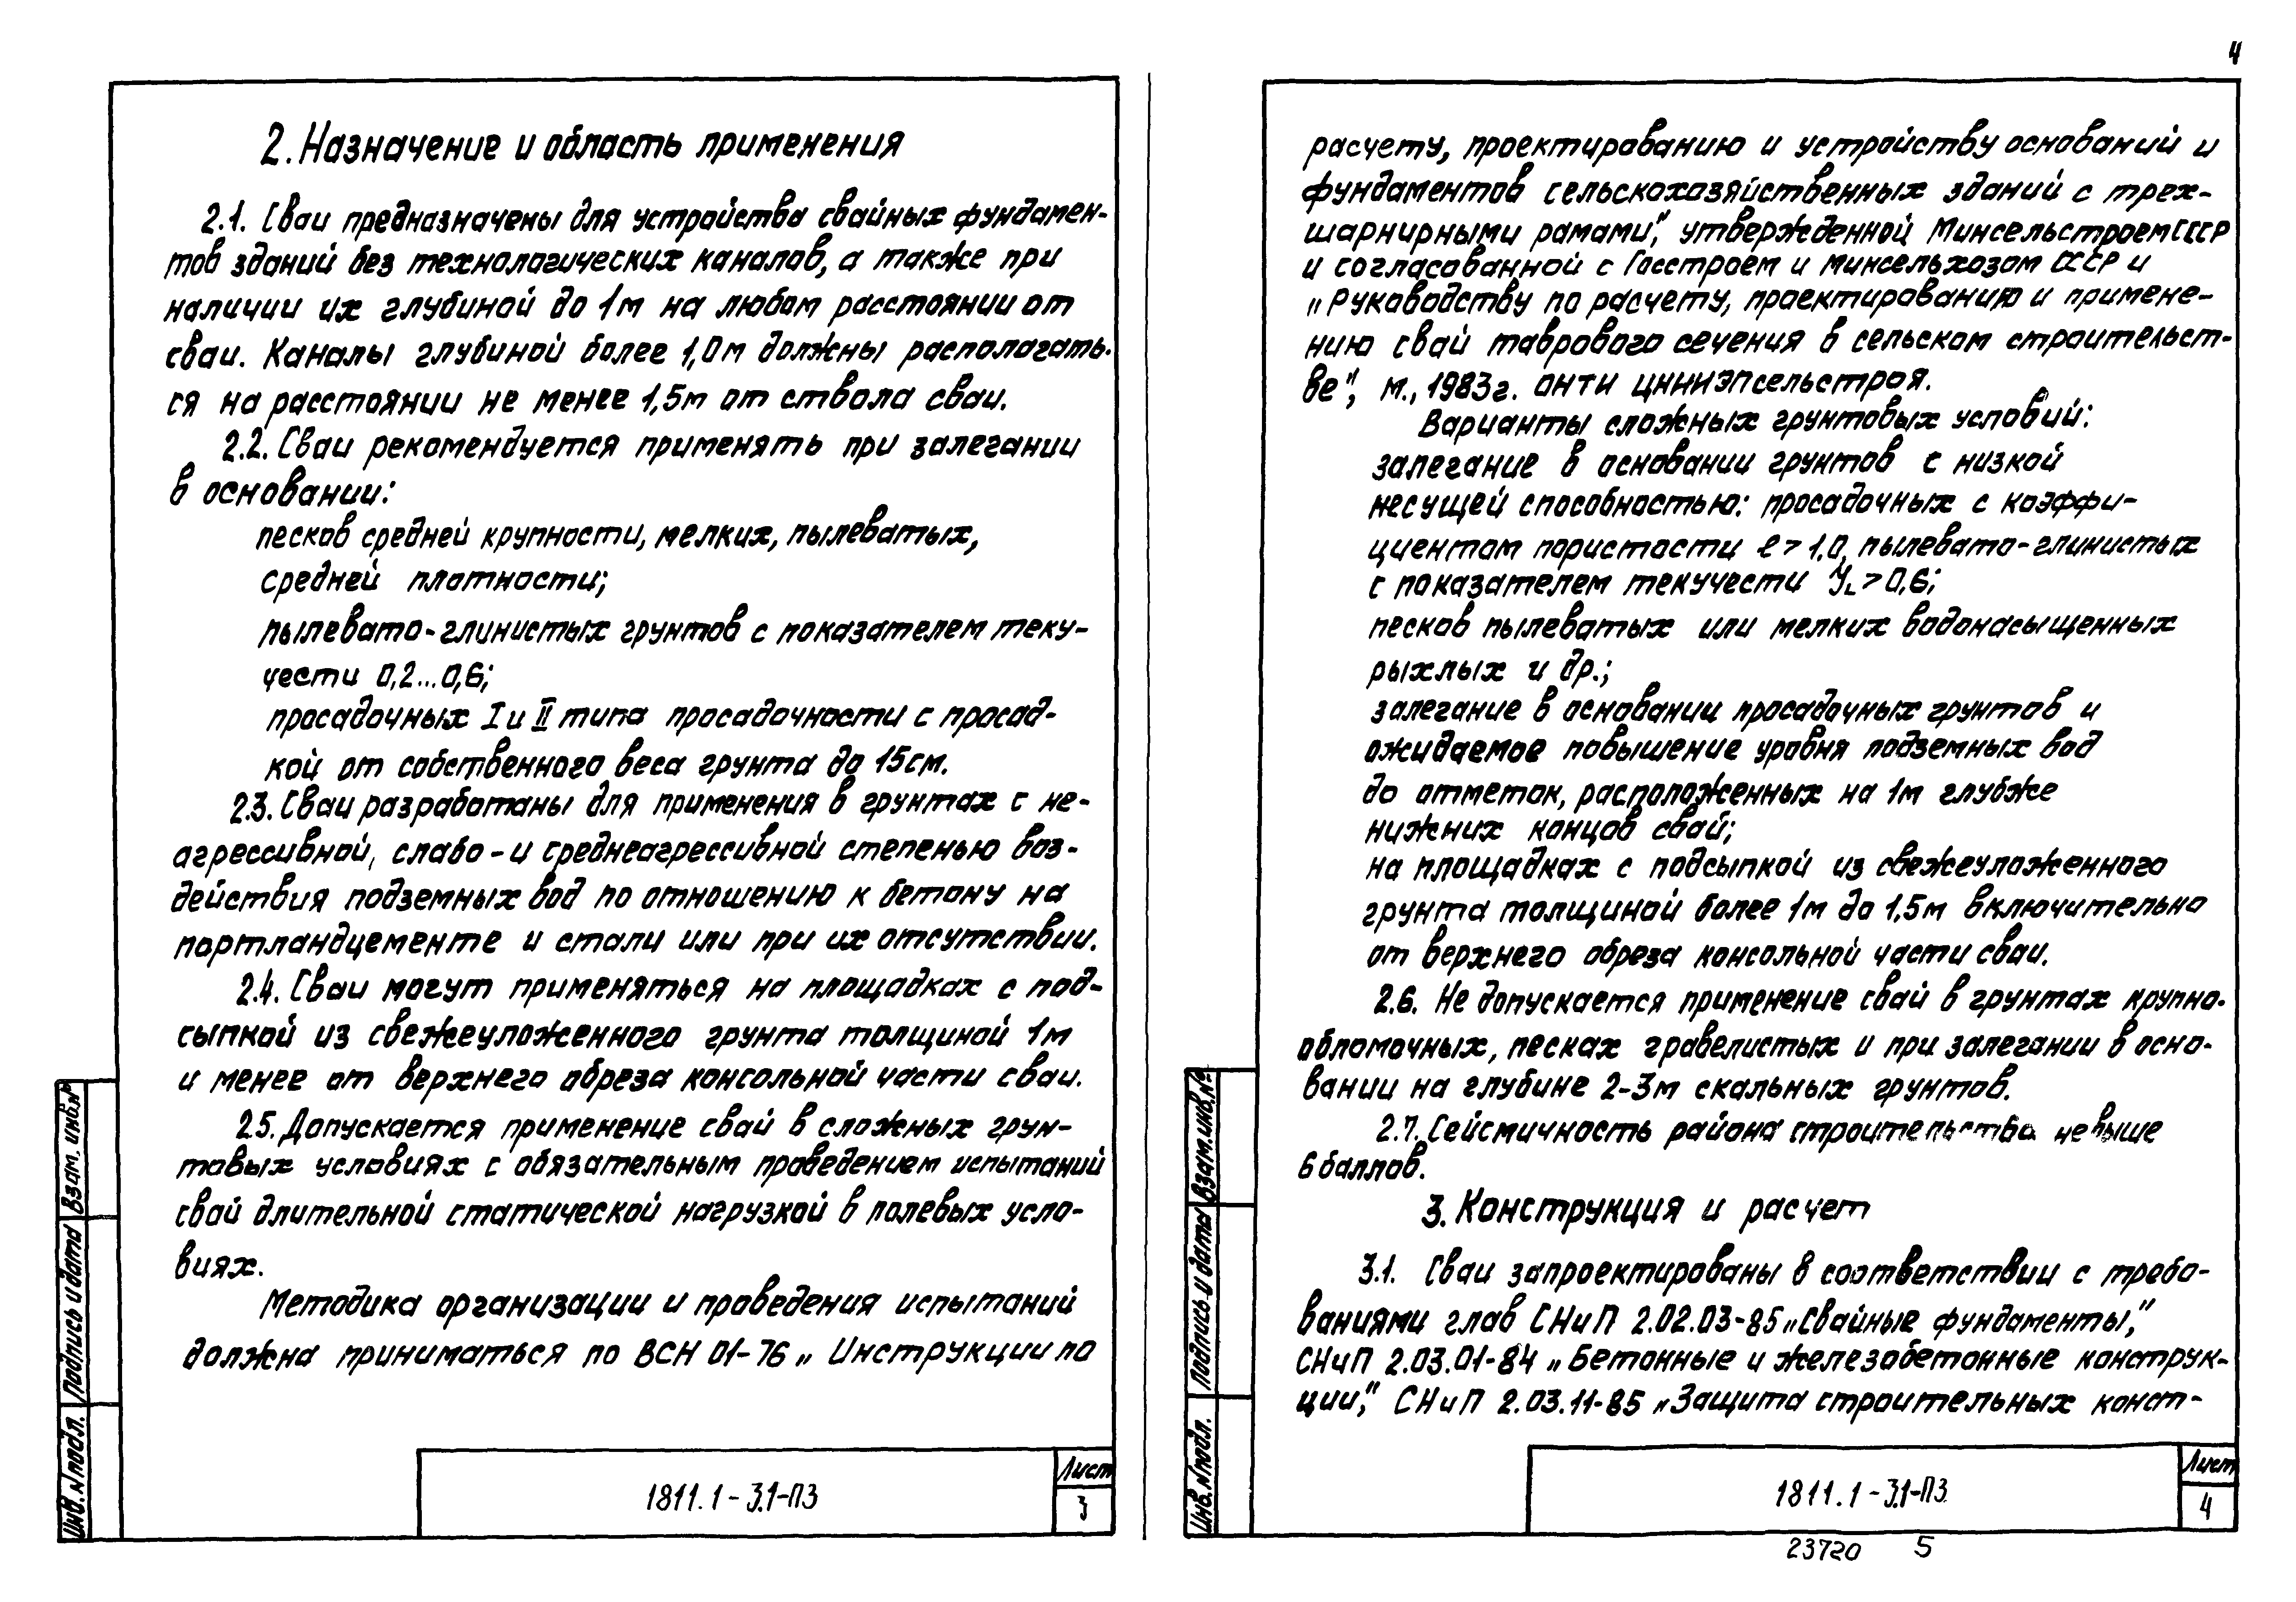 4
2. Назначение и область применения
2.1. Сваи предназначены для устройства свайных фундамен-
тов зданий без технологических каналов, а также при
наличии их глубиной до 1м на любом расстоянии от
сваи. Каналы глубиной более 1,0м должны располагать-
ся на расстоянии не менее 1,5м от ствола сваи.
2.2. Сваи рекомендуется применять при залегании
в основании:
песков средней крупности, мелких, пылеватых,
средней плотности;
пылевато-глинистых грунтов с показателем теку-
чести 0,2...0,6;
просадочных I и II типа просадочности с просад-
кой от собственного веса грунта до 15см.
2.3. Сваи разработаны для применения в грунтах с не-
агрессивной, слабо- и среднеагрессивной степенью воз-
действия подземных вод по отношению к бетону на
портландцементе и стали или при их отсутствии.
2.4. Сваи могут применяться на площадках с под-
сыпкой из свежеуложенного грунта толщиной 1м
и менее от верхнего обреза консольной части сваи.
2.5. Допускается применение свай в сложных грун-
товых условиях с обязательным проведением испытаний
свай длительной статической нагрузкой в полевых усло-
виях.
Методика организации и проведения испытаний
должна приниматься по ВСН 01-76 „Инструкции по
Взам. инв.№
Подпись и дата
Инв. №подл.
1811.1-3.1-ПЗ
Лист
3
расчету, проектированию и устройству оснований и
фундаментов сельскохозяйственных зданий с трех-
шарнирными рамами", утвержденной Минсельстроем СССР
и согласованной с Госстроем и Минсельхозом СССР и
„Руководству по расчету, проектированию и примене-
нию свай таврового сечения в сельском строительст-
ве", М., 1983г. ОНТИ ЦНИИЭПсельстроя.
Варианты сложных грунтовых условий:
залегание в основании грунтов с низкой
несущей способностью: просадочных с коэффи-
циентом пористости e > 1,0, пылевато-глинистых
с показателем текучести JL > 0,6;
песков пылеватых или мелких водонасыщенных
рыхлых и др.;
залегание в основании просадочных грунтов и
ожидаемое повышение уровня подземных вод
до отметок, расположенных на 1м глубже
нижних концов свай;
на площадках с подсыпкой из свежеуложенного
грунта толщиной более 1м до 1,5м включительно
от верхнего обреза консольной части сваи.
2.6. Не допускается применение свай в грунтах крупно-
обломочных, песках гравелистых и при залегании в осно-
вании на глубине 2-3м скальных грунтов.
2.7. Сейсмичность района строительства не выше
6 баллов.
3. Конструкция и расчет
3.1. Сваи запроектированы в соответствии с требо-
ваниями глав СНиП 2.02.03-85 „Свайные фундаменты",
СНиП 2.03.01-84 „Бетонные и железобетонные конструк-
ции", СНиП 2.03.11-85 „Защита строительных конст-
Взам.инв.№
Подпись и дата
Инв. №подл.
1811.1-3.1-ПЗ
Лист
4
23720 5